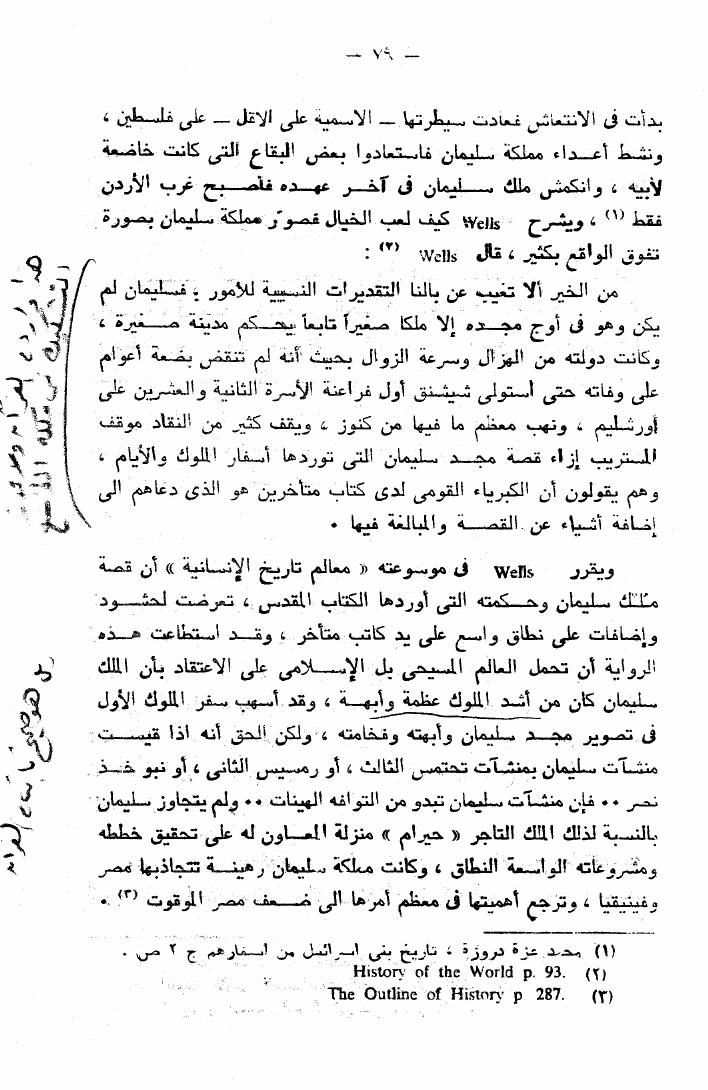 — ٧٩ —
بدأت فى الانتعاش فعادت سيطرتها — الاسمية على الاقل — على فلسطين ،
ونشط أعداء مملكة سليمان فاستعادوا بعض البقاع التى كانت خاضعة
لأبيه ، وانكمش ملك سليمان فى آخر عهده فأصبح غرب الأردن
فقط (١) ، ويشرح Wells كيف لعب الخيال فصوّر مملكة سليمان بصورة
تفوق الواقع بكثير ، قال Wells (٢) :
من الخير ألا تغيب عن بالنا التقديرات النسبية للأمور . فسليمان لم
يكن وهو فى أوج مجده إلا ملكا صغيراً تابعاً يحكم مدينة صغيرة ،
وكانت دولته من الهزال وسرعة الزوال بحيث أنه لم تنقض بضعة أعوام
على وفاته حتى استولى شيشنق أول فراعنة الأسرة الثانية والعشرين على
أورشليم ، ونهب معظم ما فيها من كنوز ، ويقف كثير من النقاد موقف
المستريب إزاء قصة مجد سليمان التى توردها أسفار الملوك والأيام ،
وهم يقولون أن الكبرياء القومى لدى كتاب متأخرين هو الذى دعاهم الى
إضافة أشياء عن القصة والمبالغة فيها .
ويقرر Wells فى موسوعته « معالم تاريخ الإنسانية » أن قصة
ملك سليمان وحكمته التى أوردها الكتاب المقدس ، تعرضت لحشود
وإضافات على نطاق واسع على يد كاتب متأخر ، وقد استطاعت هذه
الرواية أن تحمل العالم المسيحى بل الإسلامى على الاعتقاد بأن الملك
سليمان كان من أشد الملوك عظمة وأبهة ، وقد أسهب سفر الملوك الأول
فى تصوير مجد سليمان وأبهته وفخامته ، ولكن الحق أنه اذا قيست
منشآت سليمان بمنشآت تحتمس الثالث ، أو رمسيس الثانى ، أو نبو خذ
نصر .. فإن منشآت سليمان تبدو من التوافه الهينات .. ولم يتجاوز سليمان
بالنسبة لذلك الملك التاجر « حيرام » منزلة المعاون له على تحقيق خططه
ومشروعاته الواسعة النطاق ، وكانت مملكة سليمان رهينة تتجاذبها مصر
وفينيقيا ، وترجع أهميتها فى معظم أمرها الى ضعف مصر الموقوت (٣) .
(١) محمد عزة دروزة ، تاريخ بنى اسرائيل من اسفارهم ج ٢ ص .
(٢) History of the World p. 93.
(٣) The Outline of History p 287.
بل هو صحيح